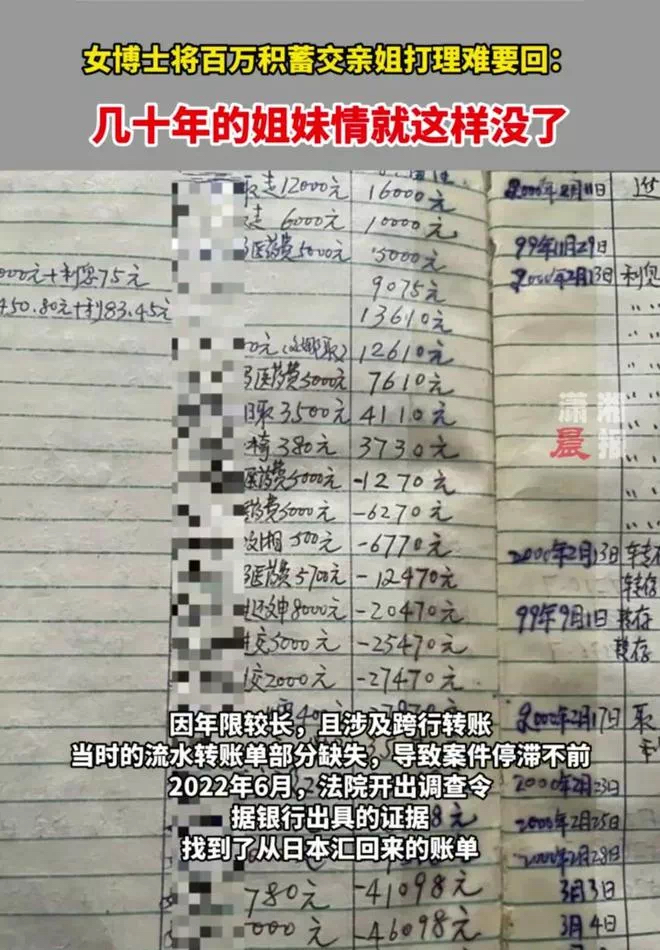 女博士将百万积蓄交亲姐打理难要回：
几十年的姐妹情就这样没了
取走12000元 16000元 2000年2月11日
走 6000元 10000元
医药费5000元 5000元 99年11月29日
000元+利息75元 9075元 2000年2月13日 利息
450.80元+利83.45元 13610元
12610元
医药费5000元 7610元
取3500元 4110元
椅380元 3730元
医药费5000元 -1270元
药费5000元 -6270元
500元 -6770元 2000年2月13日 转存
医药费5700元 -12470元 转存
8000元 -20470元 99年9月1日 转存
交5000元 -25470元 转存
交2000元 -27470元
2000年2月17日 取
潇湘晨报
因年限较长，且涉及跨行转账
当时的流水转账单部分缺失，导致案件停滞不前
2022年6月，法院开出调查令
据银行出具的证据
找到了从日本汇回来的账单
2000年2月23日
2000年2月25日
2000年2月28日
780元 -41098元 3月3日
000元 -46098元 3月4日